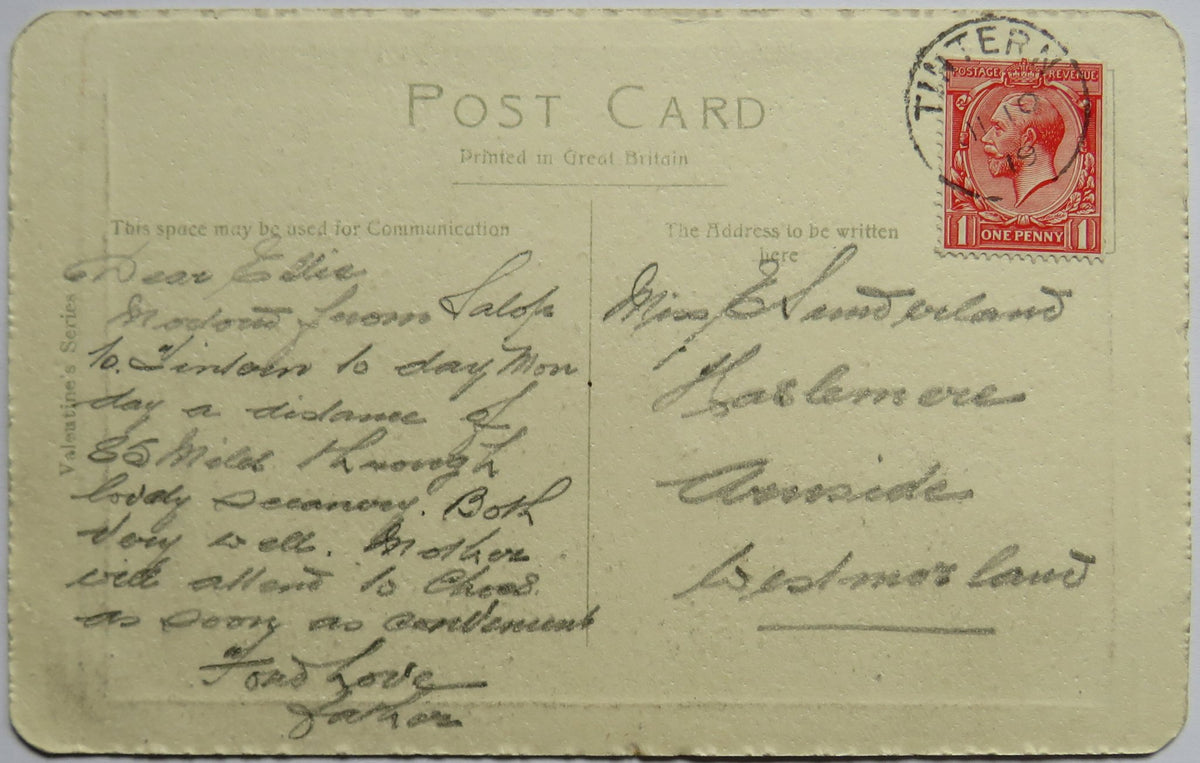 TINTERN
11 · 10
19
POSTAGE REVENUE
1 ONE PENNY 1
POST CARD
Printed in Great Britain
This space may be used for Communication
The Address to be written
here
Valentine's Series
Dear Ellie
Motord from Salop
to Tintern to day Mon
day a distance of
85 Miles through
lovely scenery. Both
Very well. Mother
will attend to
as soon as convenient
Fond Love
Father
Miss E Sunderland
Haslemere
Arnside
Westmorland